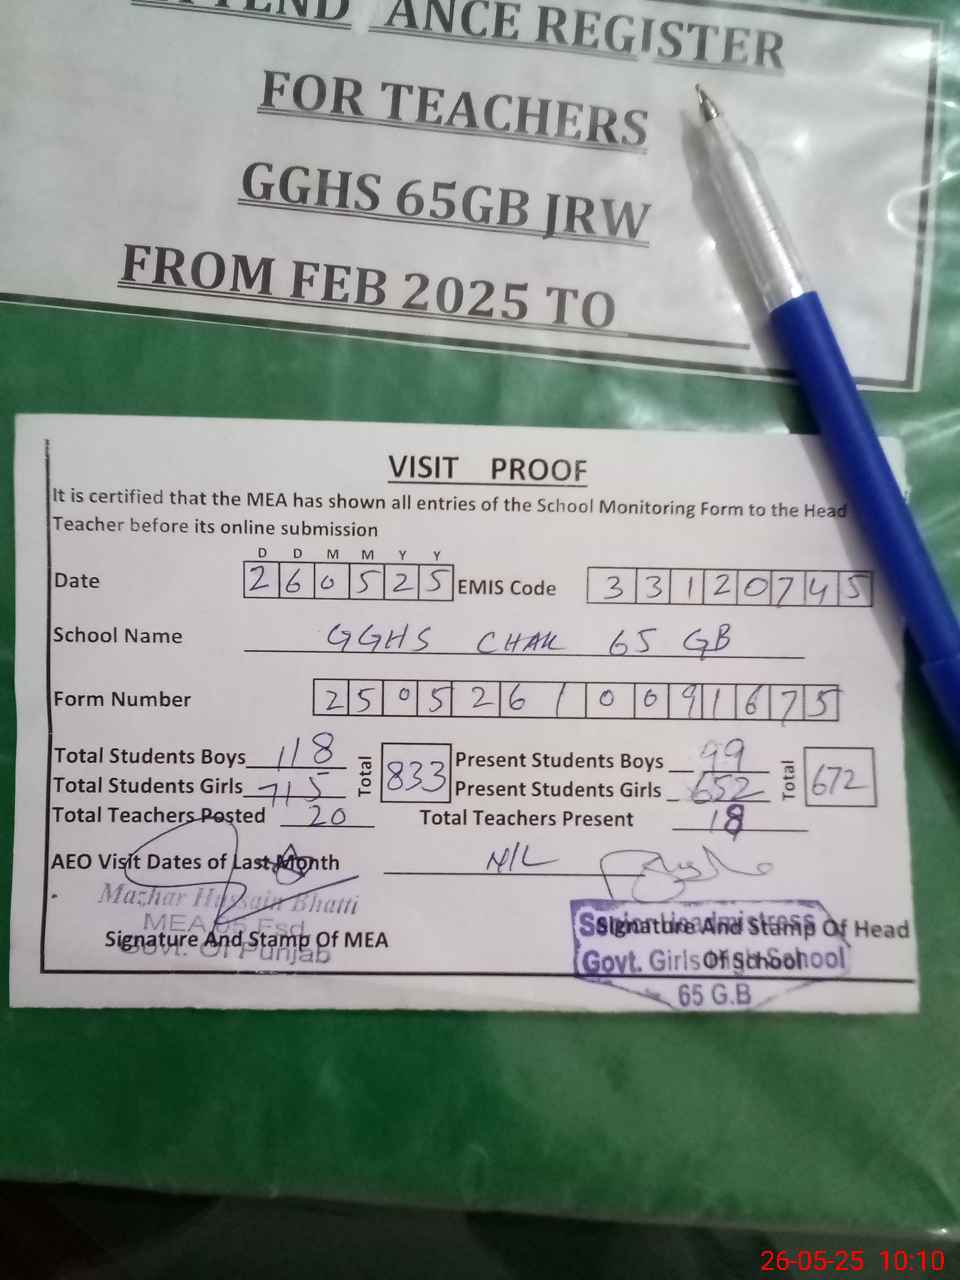 ANCE REGISTER
FOR TEACHERS
GGHS 65GB JRW
FROM FEB 2025 TO
VISIT PROOF
It is certified that the MEA has shown all entries of the School Monitoring Form to the Head
Teacher before its online submission
D D M M Y Y
Date 2 6 0 5 2 5 EMIS Code 3 3 1 2 0 7 4 5
School Name GGHS CHAK 65 GB
Form Number 2 5 0 5 2 6 / 0 0 9 1 6 7 5
Total Students Boys 118 Total 833 Present Students Boys 99 Total 672
Total Students Girls 715 Present Students Girls 652
Total Teachers Posted 20 Total Teachers Present 18
AEO Visit Dates of Last Month NIL
Mazhar Hussain Bhatti
MEA Fsd
Govt. Of Punjab
Signature And Stamp Of MEA
Signature And Stamp Of Head
Of School
Senior Headmistress
Govt. Girls High School
65 G.B
26-05-25 10:10